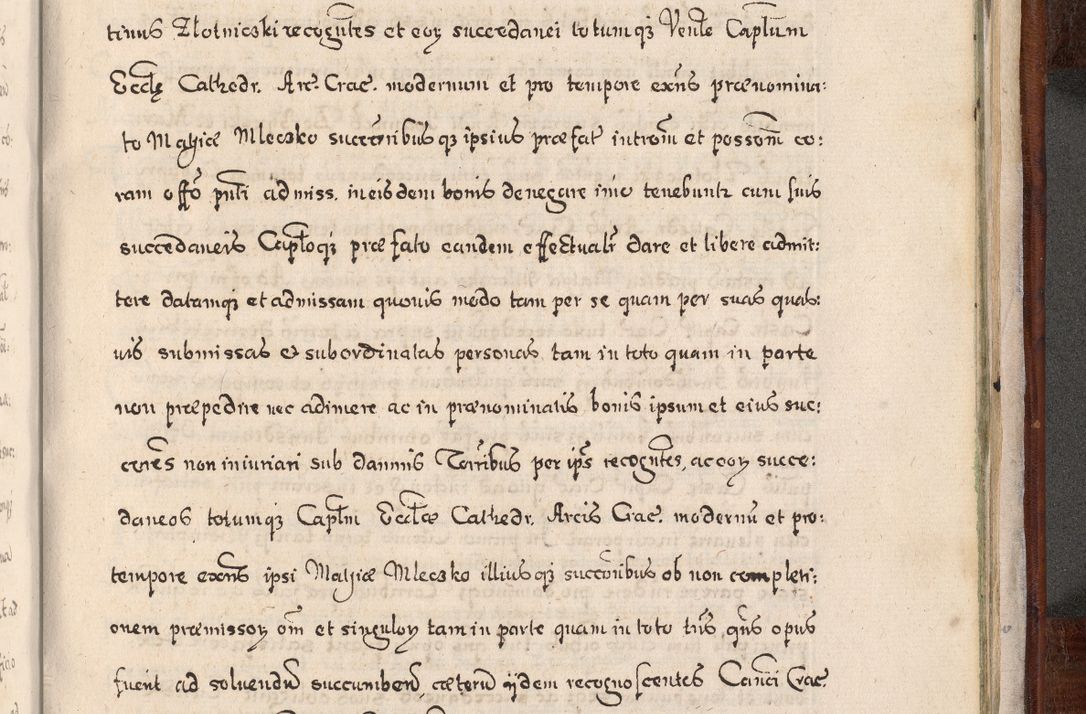 tinus Złotniczki recogn̄tes et eoꝝ succedanei totumqꝫ Venle Caplum
Ecclę Cathedr. Arc. Crac. modernum et pro tempore exn̄s prænomina:
to Mathiæ Mleczko succōribusqꝫ ipsius præfat introm̄ et possom̄ co:
ram offō pn̄ti admiss. in eisdem bonis denegare imo tenebuntr cum suis
succedaneis Caploqꝫ præfato eandem effectualr̄ dare et libere admit:
tere datamqꝫ et admissam quovis modo tam per se quam per suas quas:
uis submissas & subordinatas personas, tam in toto quam in parte
non præpedire nec adimere ac in prænominatis bonis ipsum et eius suc:
cores non iniuriari sub damnis Terribus per ip̄s recogn̄tes, ac eoꝝ succe:
daneos totumqꝫ Caplm Ecclæ Cathedr. Arcis Crac. modernū et pro:
tempore exn̄s ipsi Mathiæ Mleczko illiusqꝫ succōribus ob non completi:
onem præmissoꝝ om̄ et singuloꝝ tam in parte quam in toto trīs, qn̄s opus
fuerit ad solvendū succumbeñ, cæterū ijdem recognoscentes Canci Crac.